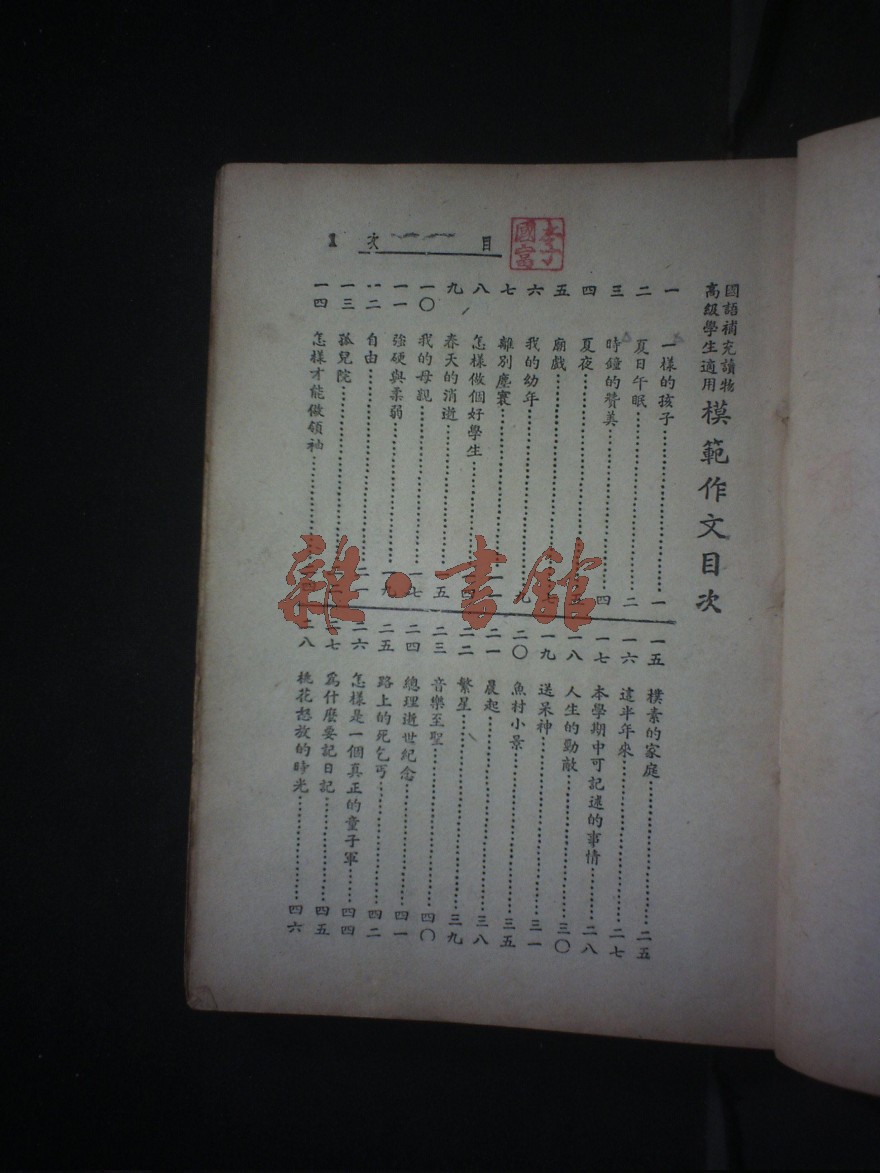 目次 1
國富
國語補充讀物
高級學生適用
模範作文目次
一 一樣的孩子 一
二 夏日午眠 二
三 時鐘的贊美 四
四 夏夜
五 廟戲
六 我的幼年 九
七 離別塵寰
八 怎樣做個好學生
九 春天的消逝 一五
一〇 我的母親 一七
一一 強硬與柔弱 一九
一二 自由
一三 孤兒院
一四 怎樣才能做領袖
一五 樸素的家庭 二五
一六 這半年來 二七
一七 本學期中可記述的事情 二八
一八 人生的勁敵 三〇
一九 送呆神 三一
二〇 魚村小景 三五
二一 晨起 三八
二二 繁星 三九
二三 音樂至聖 四〇
二四 總理逝世紀念 四一
二五 路上的死乞丐 四二
二六 怎樣是一個真正的童子軍 四四
二七 為什麼要記日記 四五
二八 桃花怒放的時光 四六
雜·書館